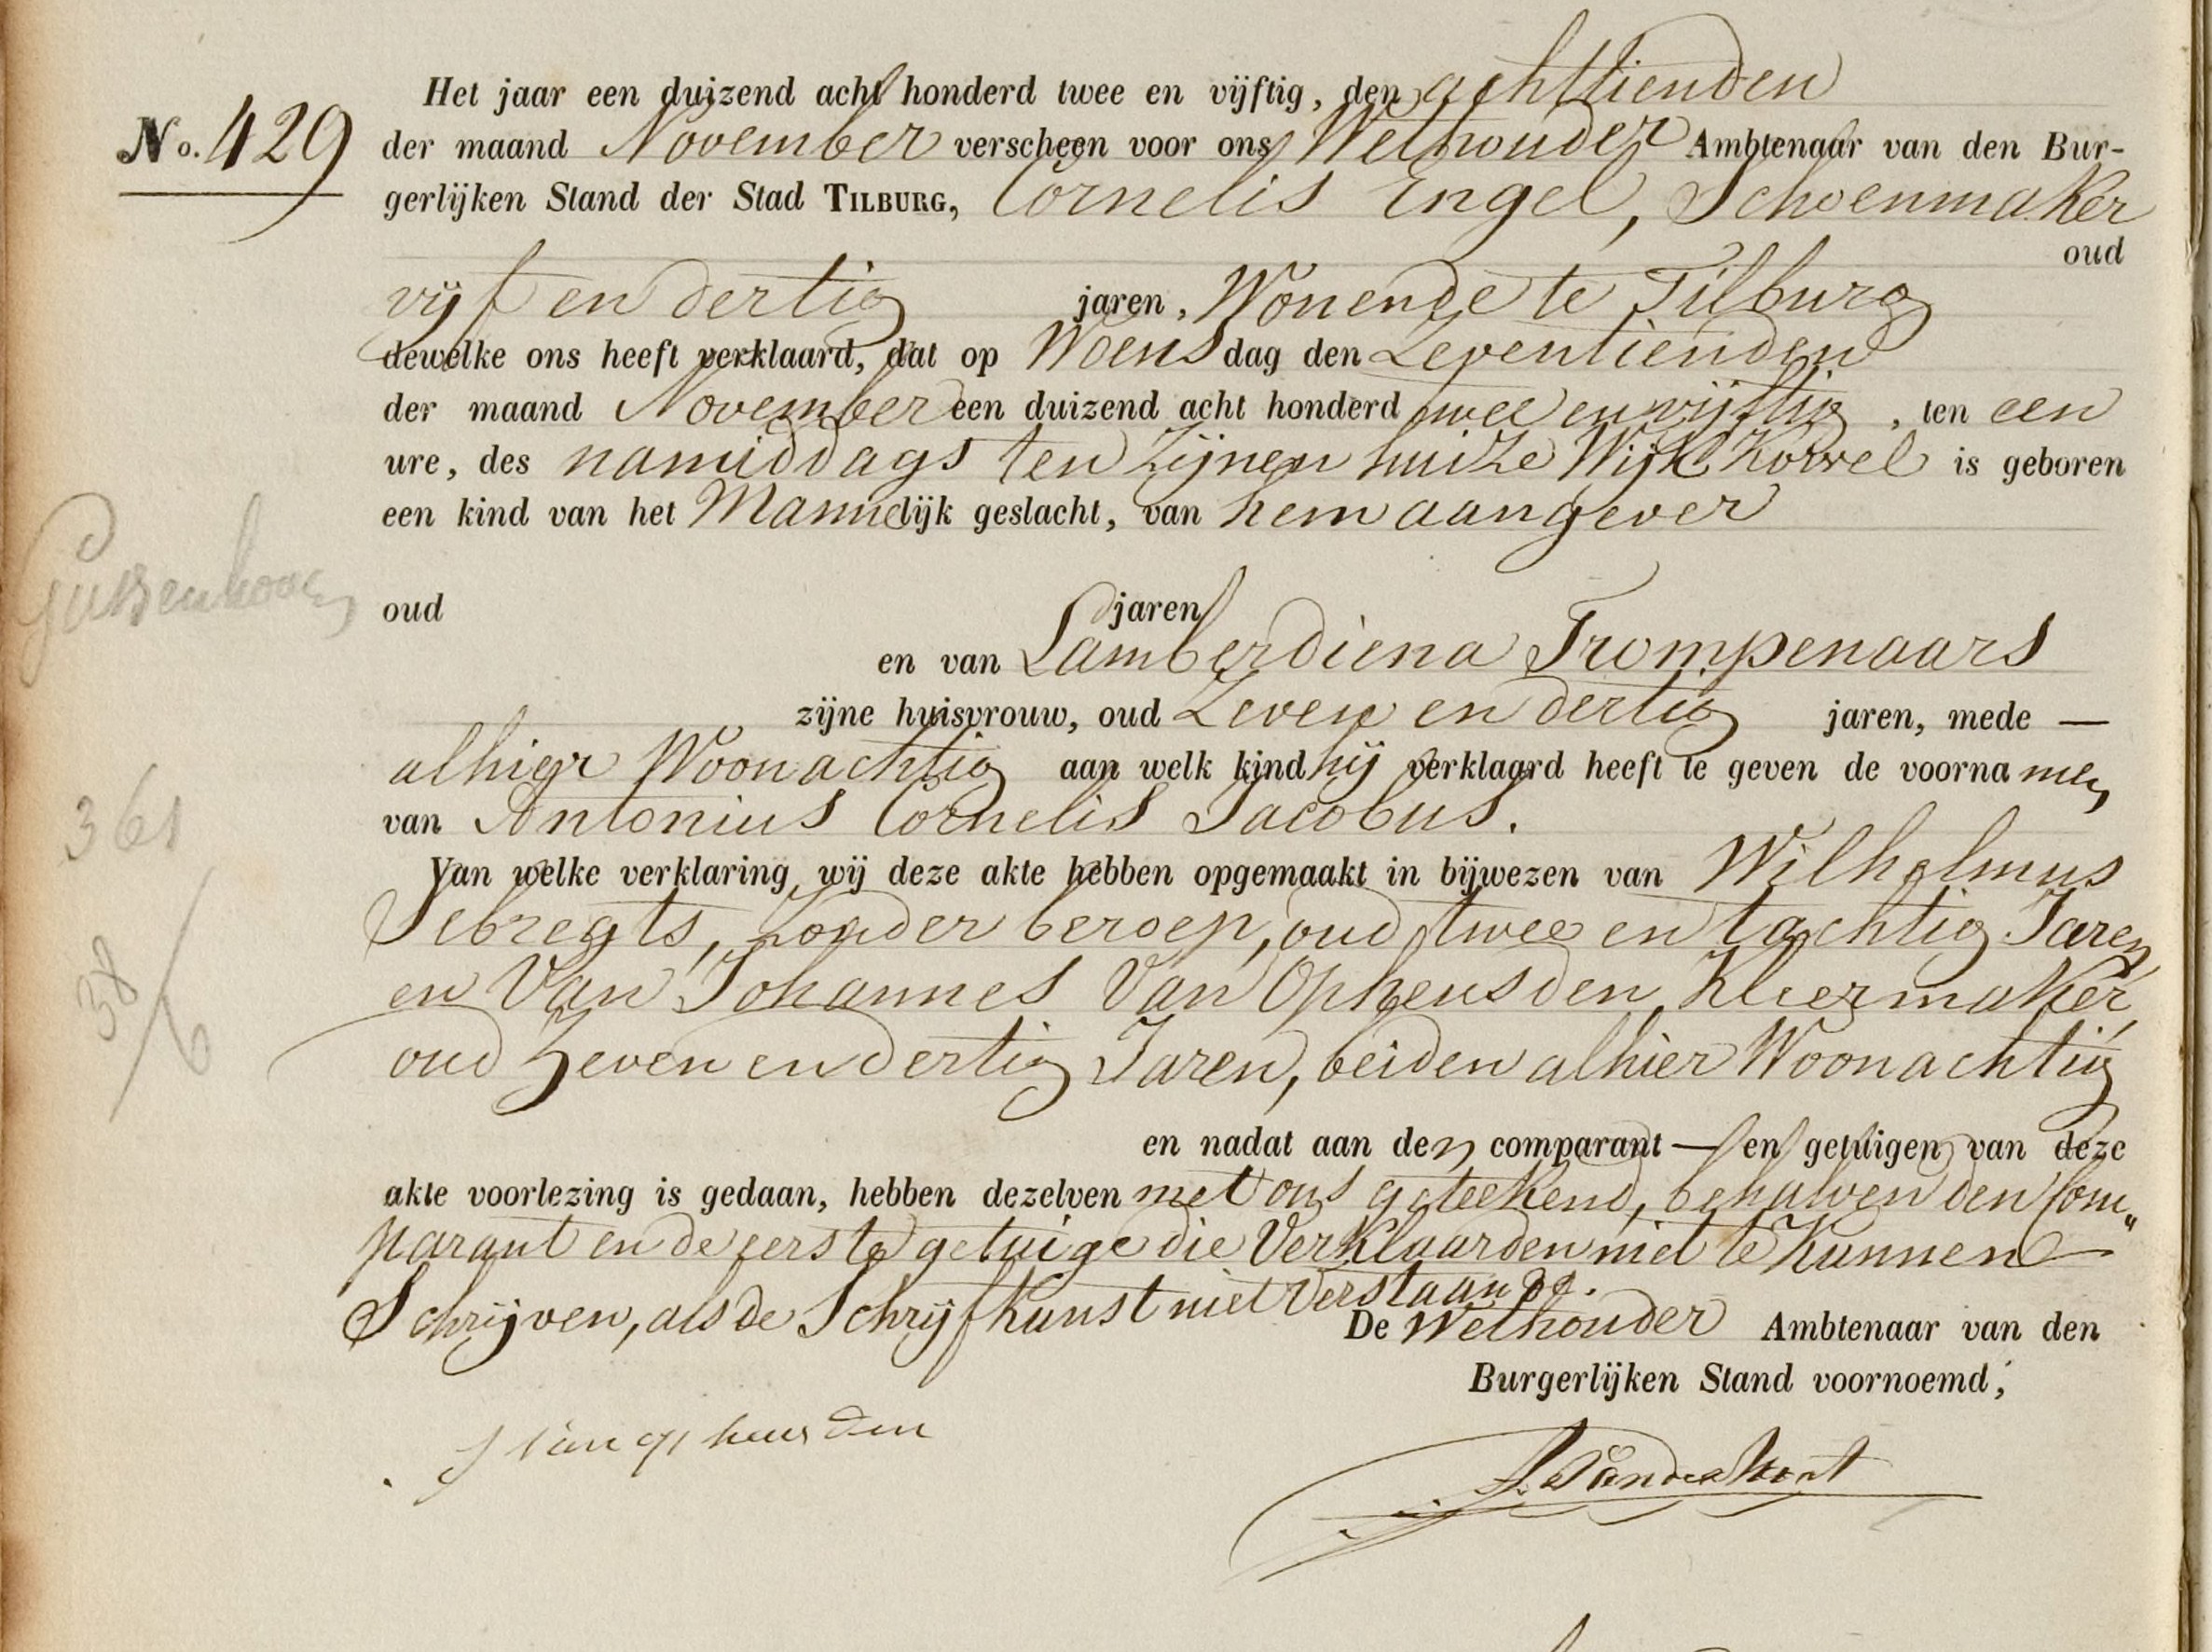 Het jaar een duizend acht honderd twee en vijftig, den achttienden
No. 429 der maand November verscheen voor ons Wethouder Ambtenaar van den Bur-
gerlijken Stand der Stad TILBURG, Cornelis Engel, Schoenmaker
oud
vijf en dertig jaren, Wonende te Tilburg
dewelke ons heeft verklaard, dat op Woensdag den Zeventienden
der maand November een duizend acht honderd twee en vijftig, ten een
ure, des namiddags ten Zijnen huize Wijk Korvel is geboren
een kind van het Mannelijk geslacht, van hem aangever
oud jaren
en van Lamberdiena Trompenaars
zijne huisvrouw, oud Zeven en dertig jaren, mede —
alhier Woonachtig aan welk kind hij verklaard heeft te geven de voornamen
van Antonius Cornelis Jacobus.
361
Van welke verklaring wij deze akte hebben opgemaakt in bijwezen van Wilhelmus
Sebregts, zonder beroep, oud twee en tachtig Jaren
en Van Johannes Van Opheusden, Kleermaker,
38/6
oud Zeven en dertig Jaren, beiden alhier Woonachtig
en nadat aan den comparant — en getuigen van deze
akte voorlezing is gedaan, hebben dezelven met ons geteekend, behalven den Com„
parant en de eerste getuige die Verklaarden niet te Kunnen —
Schrijven, als de Schrijfkunst niet Verstaande.
De Wethouder Ambtenaar van den
Burgerlijken Stand voornoemd,
J Van opheusden